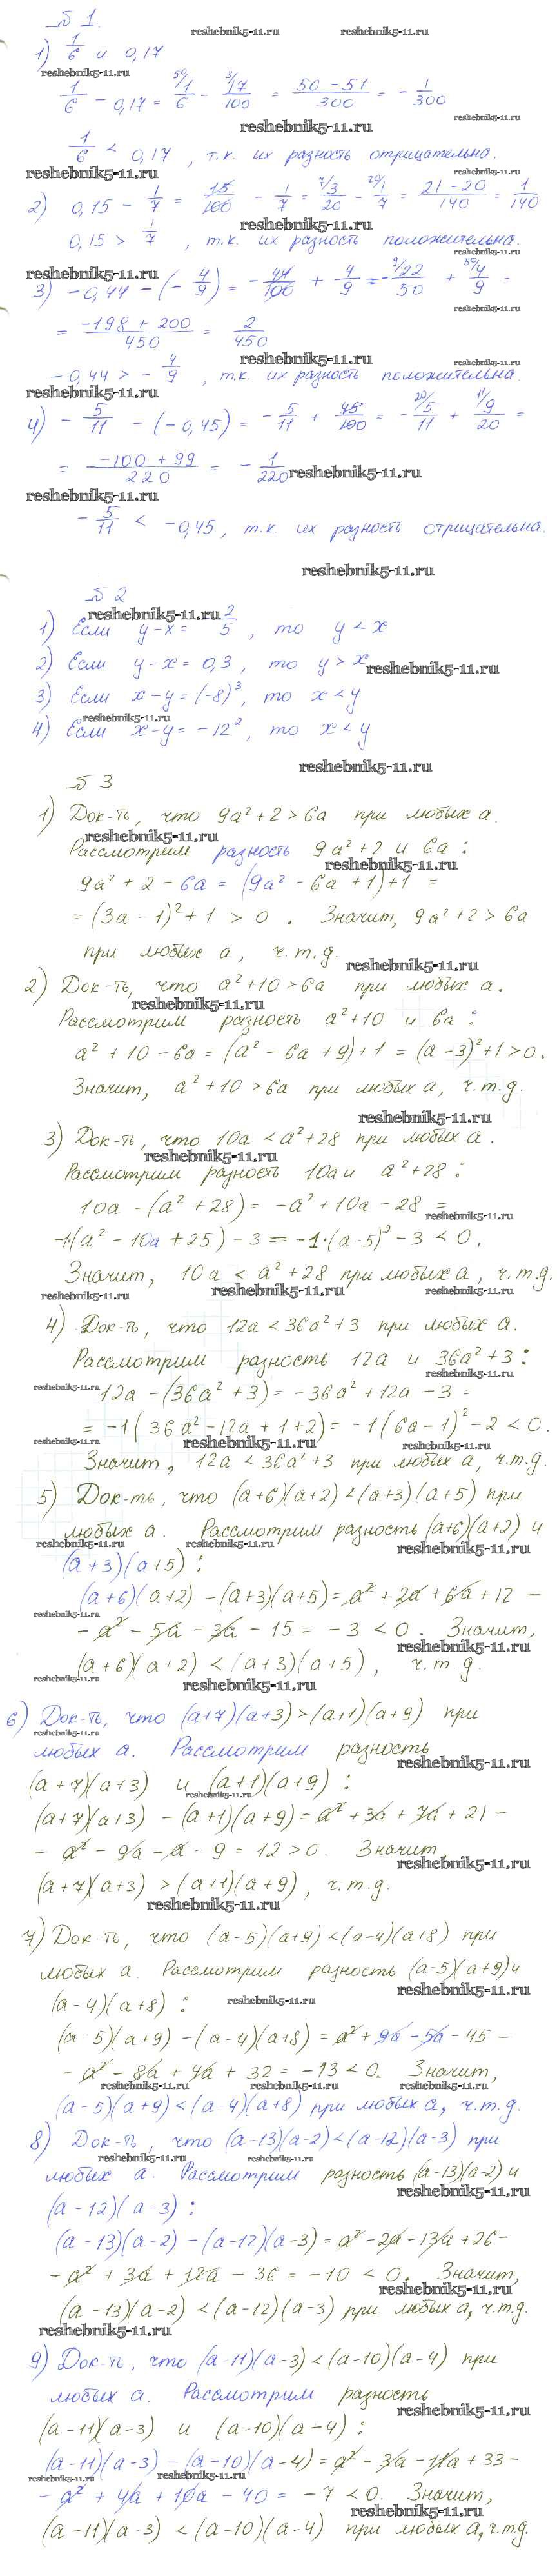 № 1.
reshebnik5-11.ru reshebnik5-11.ru
1) 1/6 и 0,17
reshebnik5-11.ru
1/6 - 0,17 = 50/1/6 - 3/17/100 = (50 - 51)/300 = - 1/300
reshebnik5-11.ru
reshebnik5-11.ru
1/6 < 0,17 , т.к. их разность отрицательна.
reshebnik5-11.ru reshebnik5-11.ru
2) 0,15 - 1/7 = 15/100 - 1/7 = 7/3/20 - 20/1/7 = (21 - 20)/140 = 1/140
0,15 > 1/7 , т.к. их разность положительна.
reshebnik5-11.ru
reshebnik5-11.ru
3) -0,44 - (- 4/9) = - 44/100 + 4/9 = - 9/22/50 + 50/4/9 =
reshebnik5-11.ru
= (-198 + 200)/450 = 2/450
reshebnik5-11.ru reshebnik5-11.ru
-0,44 > - 4/9 , т.к. их разность положительна.
reshebnik5-11.ru
4) - 5/11 - (-0,45) = - 5/11 + 45/100 = - 20/5/11 + 11/9/20 =
= (-100 + 99)/220 = - 1/220
reshebnik5-11.ru
reshebnik5-11.ru
- 5/11 < -0,45 , т.к. их разность отрицательна.
reshebnik5-11.ru
№ 2
reshebnik5-11.ru
1) Если y-x = 2/5 , то y < x
2) Если y-x = 0,3 , то y > x
reshebnik5-11.ru
3) Если x-y = (-8)³, то x < y
reshebnik5-11.ru
4) Если x-y = -12², то x < y
reshebnik5-11.ru
№ 3
1) Док-ть, что 9a²+2 > 6a при любых a.
reshebnik5-11.ru
Рассмотрим разность 9a²+2 и 6a :
reshebnik5-11.ru
9a² + 2 - 6a = (9a² - 6a + 1) + 1 =
= (3a - 1)² + 1 > 0 . Значит, 9a²+2 > 6a
при любых a, ч.т.д.
reshebnik5-11.ru
2) Док-ть, что a²+10 > 6a при любых a.
reshebnik5-11.ru
Рассмотрим разность a²+10 и 6a :
a² + 10 - 6a = (a² - 6a + 9) + 1 = (a - 3)² + 1 > 0.
Значит, a²+10 > 6a при любых a, ч.т.д.
reshebnik5-11.ru
3) Док-ть, что 10a < a²+28 при любых a.
reshebnik5-11.ru
Рассмотрим разность 10a и a²+28 :
10a - (a² + 28) = -a² + 10a - 28 =
reshebnik5-11.ru
-1(a² - 10a + 25) - 3 = -1·(a-5)² - 3 < 0.
Значит, 10a < a²+28 при любых a, ч.т.д.
reshebnik5-11.ru reshebnik5-11.ru
4) Док-ть, что 12a < 36a²+3 при любых a.
Рассмотрим разность 12a и 36a²+3 :
reshebnik5-11.ru
reshebnik5-11.ru
12a - (36a² + 3) = -36a² + 12a - 3 =
= -1(36a² - 12a + 1 + 2) = -1(6a - 1)² - 2 < 0.
reshebnik5-11.ru reshebnik5-11.ru reshebnik5-11.ru
Значит, 12a < 36a²+3 при любых a, ч.т.д.
5) Док-ть, что (a+6)(a+2) < (a+3)(a+5) при
любых a. Рассмотрим разность (a+6)(a+2) и
reshebnik5-11.ru reshebnik5-11.ru reshebnik5-11.ru
(a+3)(a+5) :
(a+6)(a+2) - (a+3)(a+5) = a² + 2a + 6a + 12 -
reshebnik5-11.ru
- a² - 5a - 3a - 15 = -3 < 0. Значит,
reshebnik5-11.ru
(a+6)(a+2) < (a+3)(a+5), ч.т.д.
reshebnik5-11.ru
reshebnik5-11.ru
6) Док-ть, что (a+7)(a+3) > (a+1)(a+9) при
reshebnik5-11.ru
любых a. Рассмотрим разность
reshebnik5-11.ru
(a+7)(a+3) и (a+1)(a+9) :
reshebnik5-11.ru
(a+7)(a+3) - (a+1)(a+9) = a² + 3a + 7a + 21 -
- a² - 9a - a - 9 = 12 > 0. Значит,
reshebnik5-11.ru
(a+7)(a+3) > (a+1)(a+9), ч.т.д.
reshebnik5-11.ru
7) Док-ть, что (a-5)(a+9) < (a-4)(a+8) при
любых a. Рассмотрим разность (a-5)(a+9) и
reshebnik5-11.ru
(a-4)(a+8) :
reshebnik5-11.ru
(a-5)(a+9) - (a-4)(a+8) = a² + 9a - 5a - 45 -
- a² - 8a + 4a + 32 = -13 < 0. Значит,
reshebnik5-11.ru reshebnik5-11.ru reshebnik5-11.ru
(a-5)(a+9) < (a-4)(a+8) при любых a, ч.т.д.
8) Док-ть, что (a-13)(a-2) < (a-12)(a-3) при
reshebnik5-11.ru reshebnik5-11.ru
любых a. Рассмотрим разность (a-13)(a-2) и
reshebnik5-11.ru
(a-12)(a-3) :
(a-13)(a-2) - (a-12)(a-3) = a² - 2a - 13a + 26 -
- a² + 3a + 12a - 36 = -10 < 0. Значит,
reshebnik5-11.ru
(a-13)(a-2) < (a-12)(a-3) при любых a, ч.т.д.
reshebnik5-11.ru
9) Док-ть, что (a-11)(a-3) < (a-10)(a-4) при
любых a. Рассмотрим разность
reshebnik5-11.ru
(a-11)(a-3) и (a-10)(a-4) :
(a-11)(a-3) - (a-10)(a-4) = a² - 3a - 11a + 33 -
reshebnik5-11.ru reshebnik5-11.ru
- a² + 4a + 10a - 40 = -7 < 0. Значит,
reshebnik5-11.ru
(a-11)(a-3) < (a-10)(a-4) при любых a, ч.т.д.